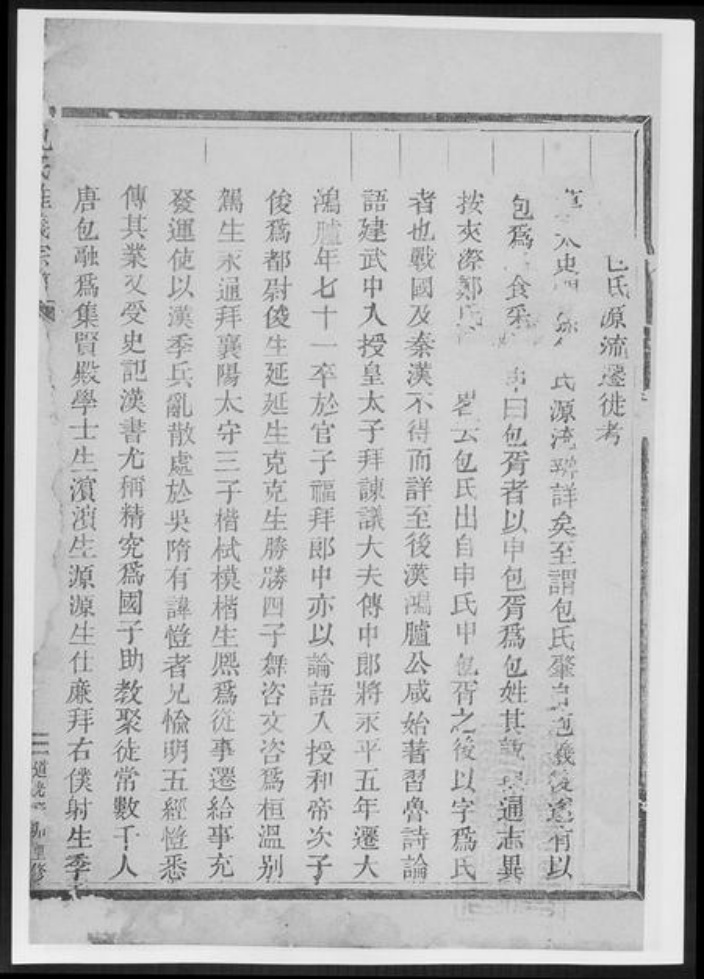 氏源流遷徙考
太史 氏源流辨詳矣至謂包氏肇自庖羲後遂有以
包爲 食采 曰包胥者以申包胥爲包姓其說與通志異
按夾漈鄭氏 畧云包氏出自申氏申包胥之後以字爲氏
者也戰國及秦漢不得而詳至後漢鴻臚公咸始著習魯詩論
語建武中入授皇太子拜諫議大夫傳中郎將永平五年遷大
鴻臚年七十一卒於官子福拜郎中亦以論語入授和帝次子
俊爲都尉俊生延延生克克生勝勝四子舞咨文咨爲桓溫别
駕生永通拜襄陽太守三子楷栻模楷生熈爲從事遷給事充
發運使以漢季兵亂散處於吳隋有諱愷者兄愉明五經愷悉
傳其業又受史記漢書尤稱精究爲國子助教聚徒常數千人
唐包融爲集賢殿學士生濵濵生源源生仕亷拜右僕射生季